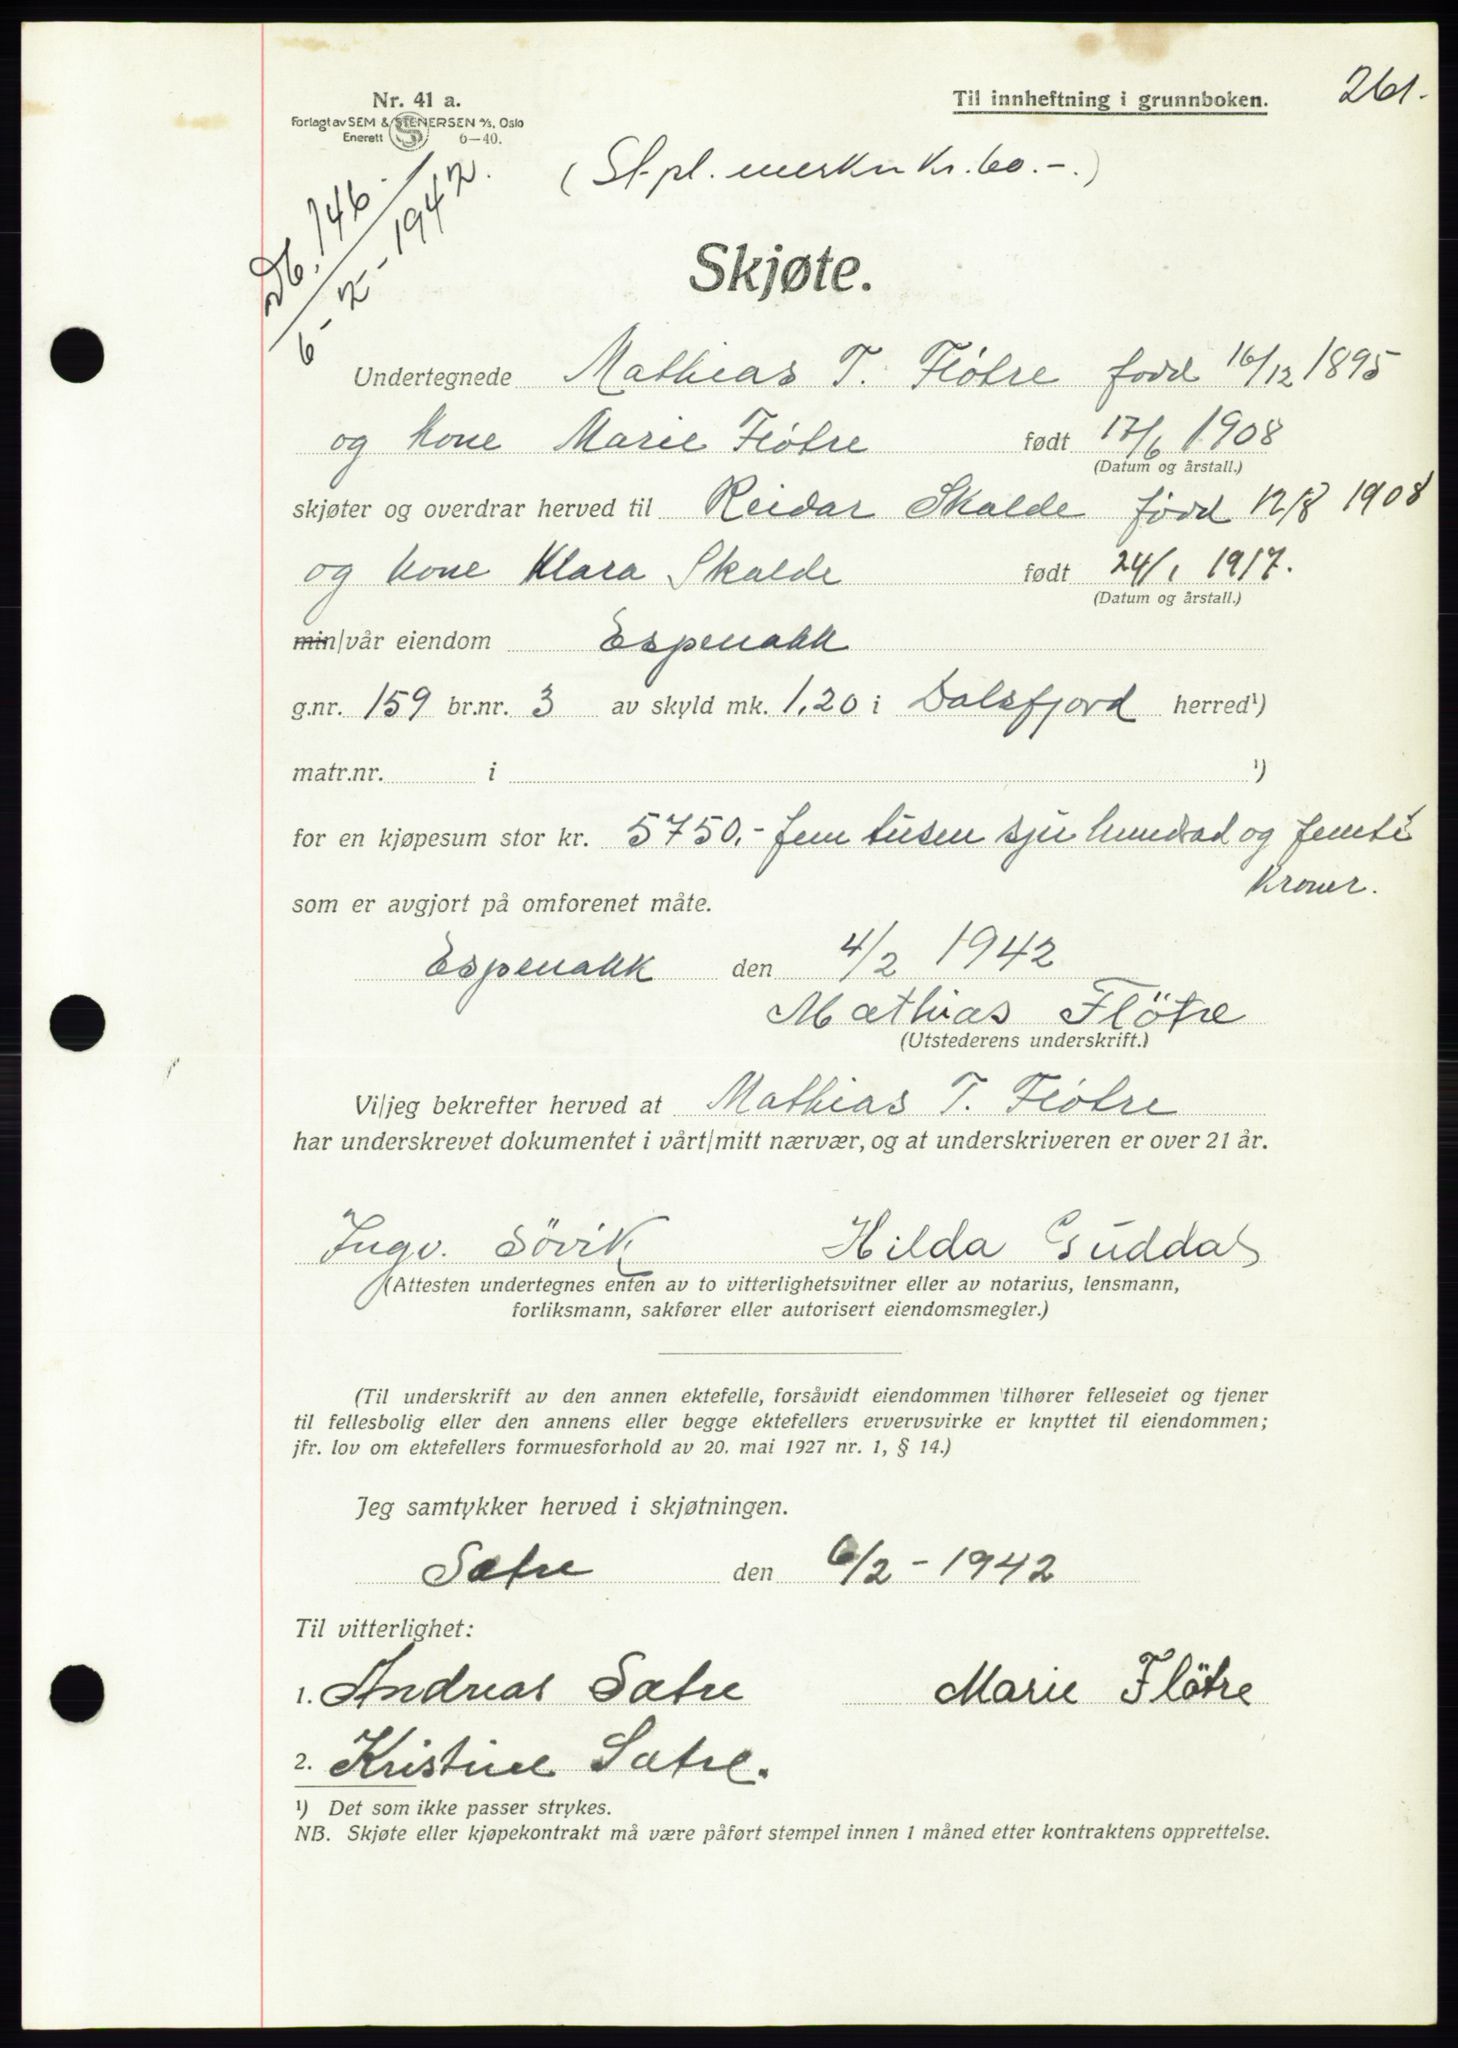 261.
Nr. 41 a.
Forlagt av SEM & STENERSEN A/S, Oslo
Enerett 6—40.
Til innheftning i grunnboken.
(St.pl. merke kr. 60.-.)
Db. 746.
6-2-1942.
Skjøte.
Undertegnede Mathias T. Flötre född 16/12 1895
og kone Marie Flötre født 17/6 1908
(Datum og årstall.)
skjøter og overdrar herved til Reidar Skalde född 12/8 1908
og kone Klara Skalde født 24/1 1917.
(Datum og årstall.)
min/vår eiendom Espenakk
g.nr. 159 br.nr. 3 av skyld mk. 1,20 i Dalsfjord herred¹)
matr.nr. i ¹)
for en kjøpesum stor kr. 5750,- fem tusen sju hundrad og femti
kroner.
som er avgjort på omforenet måte.
Espenakk den 4/2 1942
Mathias Flötre
(Utstederens underskrift.)
Vi/jeg bekrefter herved at Mathias T. Flötre
har underskrevet dokumentet i vårt/mitt nærvær, og at underskriveren er over 21 år.
Ingv. Sövik Hilda Guddal
(Attesten undertegnes enten av to vitterlighetsvitner eller av notarius, lensmann,
forliksmann, sakfører eller autorisert eiendomsmegler.)
(Til underskrift av den annen ektefelle, forsåvidt eiendommen tilhører felleseiet og tjener
til fellesbolig eller den annens eller begge ektefellers ervervsvirke er knyttet til eiendommen;
jfr. lov om ektefellers formuesforhold av 20. mai 1927 nr. 1, § 14.)
Jeg samtykker herved i skjøtningen.
Sætre den 6/2 - 1942
Til vitterlighet:
1. Andreas Sætre Marie Flötre
2. Kristine Sætre.
¹) Det som ikke passer strykes.
NB. Skjøte eller kjøpekontrakt må være påført stempel innen 1 måned etter kontraktens opprettelse.